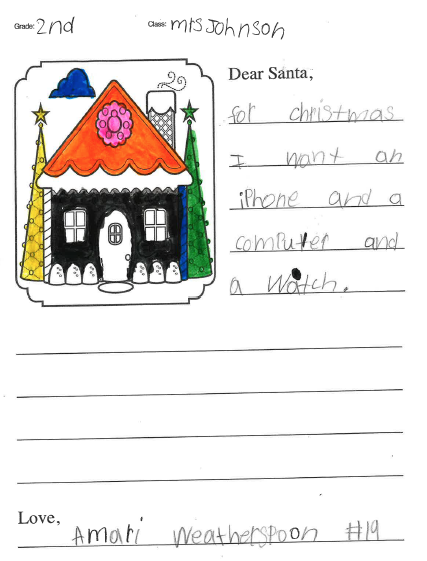 Grade: 2nd Class: mrs Johnson
Dear Santa,
for christmas
I want an
iPhone and a
computer and
a Watch.
Love,
Amari Weatherspoon #19